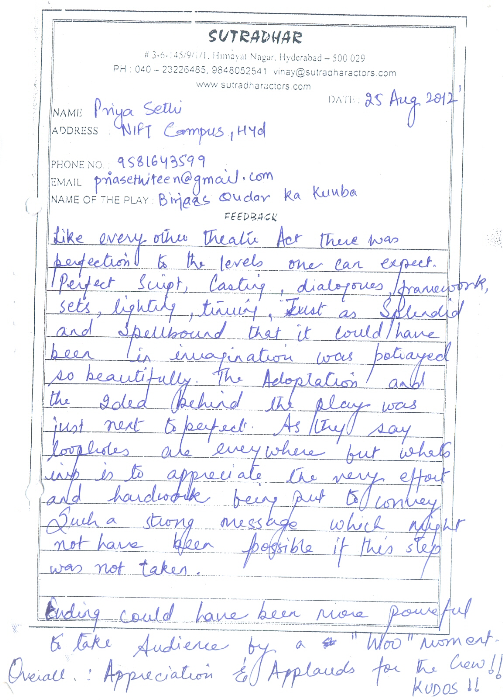 SUTRADHAR
# 3-6-145/9/1/1, Himayat Nagar, Hyderabad – 500 029
PH : 040 – 23226485, 9848052541 vinay@sutradharactors.com
www.sutradharactors.com
DATE: 25 Aug 2012
NAME Priya Sethi
ADDRESS NIFT Campus, Hyd
PHONE NO. 9581643599
EMAIL priasethiteen@gmail.com
NAME OF THE PLAY: Birjees Qudar Ka Kunba
FEEDBACK
Like every other Theatre Act there was
perfection to the levels one can expect.
Perfect Script, Casting, dialogues, framework,
sets, lighting, timing, Just as Splendid
and Spellbound that it could have
been in imagination was potrayed
so beautifully. The Adaptation and
the Idea behind the play was
just next to perfect. As they say
loopholes are everywhere but whats
imp is to appreciate the very effort
and hardwork being put to convey
Such a strong message which might
not have been possible if this step
was not taken.
Ending could have been more powerful
to take Audience by a "Woo" moment.
Overall : Appreciation & Applauds for the Crew!!
KUDOS !!